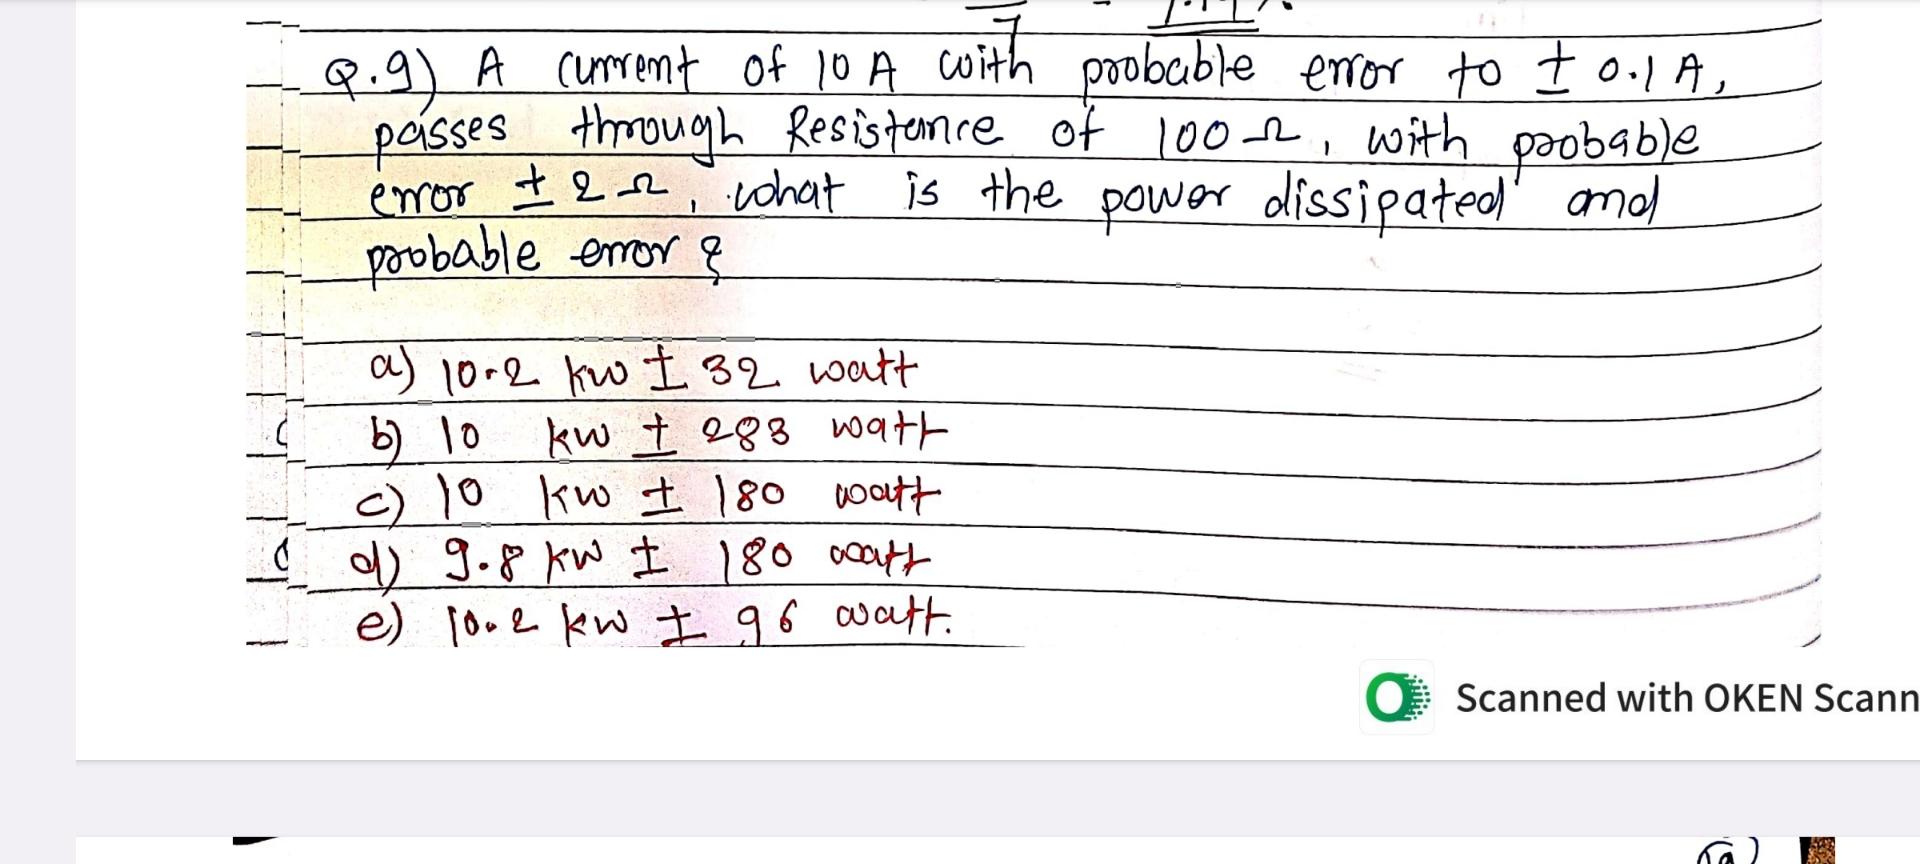 Q.9) A current of 10 A with probable error to ± 0.1 A,
passes through Resistance of 100 Ω, with probable
error ± 2 Ω, what is the power dissipated and
probable error ?
a) 10.2 kw ± 32 watt
b) 10 kw ± 283 watt
c) 10 kw ± 180 watt
d) 9.8 kw ± 180 watt
e) 10.2 kw ± 96 watt.
Scanned with OKEN Scann